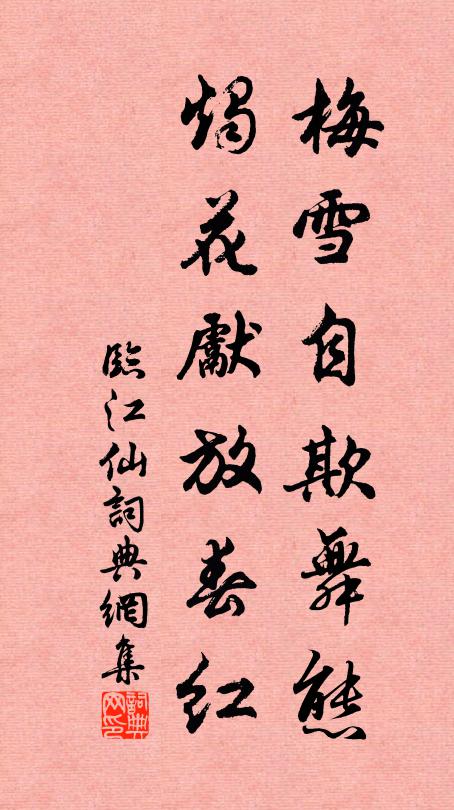 梅雪自欺舞態
燭花獻放春紅
臨江仙詞典網集
詞典
网印